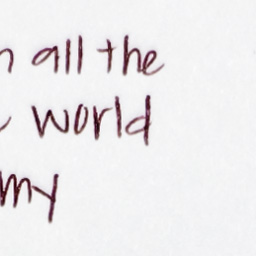 all the
world
my